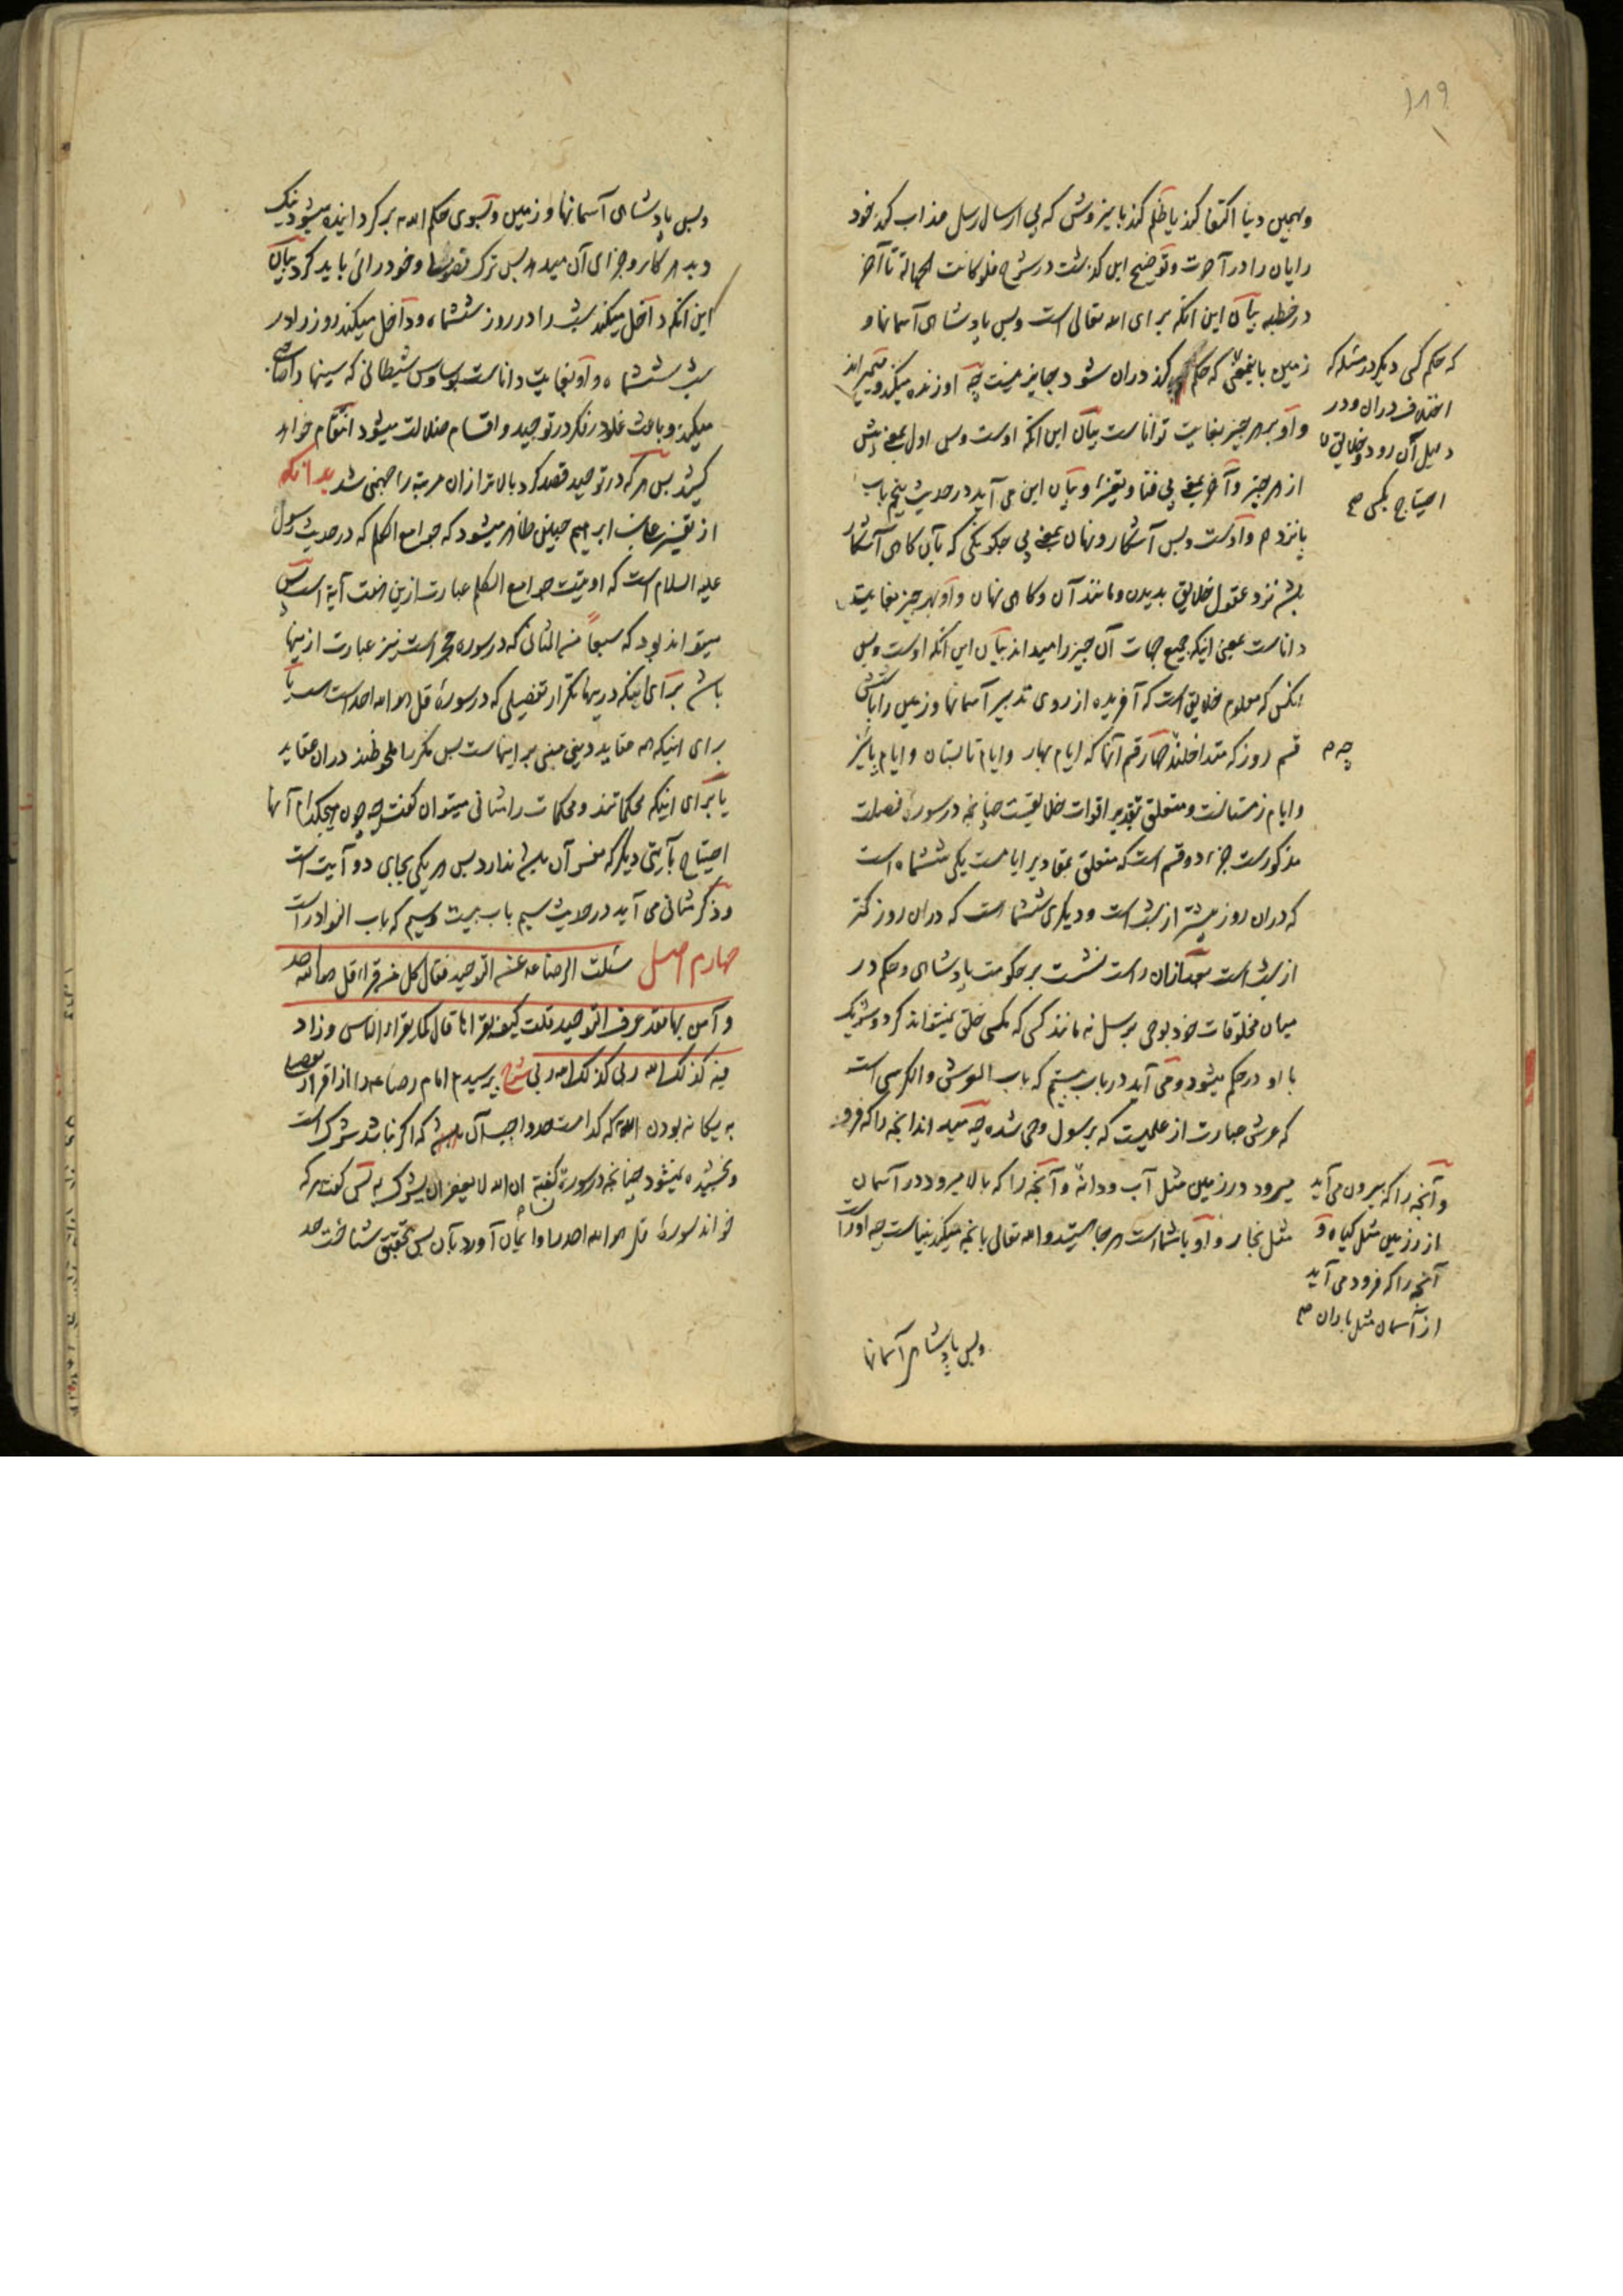 ۱۸۹
وبهمین دنیا اکتفا کند یا ظلم کند باین روش که بی ارسال رسل عذاب کند خود
رایان را در آخرت و توضیح این گذشت در شرح فلو کانت الجهالة تا آخر
در خطبه بیان این آنکه برای الله تعالی است و بس پادشاهی آسمانها و
زمین باینمعنی که حکم کند دران شود جایز نیست چه او زنده میکند و میمیراند
که حکم کسی دیگر در مسئله که
اختلاف دران و در
دلیل آن رود و خلایق را
احتیاج بکسی صح
و او بر هر چیز بغایت تواناست بیان این آنکه اوست و بس اول بمعنی پیش
از هر چیز و آخر بمعنی بی فنا و تغیر و بیان این می آید در حدیث پنجم باب
پانزدهم و اوست و بس آشکار و نهان بمعنی بی چگونگی که بآن گاهی آشکار
باشد نزد عقول خلایق بدیدن و مانند آن و گاهی نهان و او بهر چیز بغایت
داناست بمعنی اینکه جمیع جهات آن چیز را میداند بیان این آنکه اوست و بس
آنکس که معلوم خلایق است که آفریده از روی تدبیر آسمانها و زمین را باشش
قسم روز که متداخلند چهار قسم آنها که ایام بهار و ایام تابستان و ایام پائیز
چه م
و ایام زمستانست و متعلق بتقدیر اقوات خلایقست چنانچه در سوره فصلت
مذکورست جزء دو قسم است که متعلق بمقادیر ایامست یکی ششماه است
که دران روز بیشتر از شب است و دیگری ششماست که دران روز کمتر
از شب است بعد ازان راست نشست بر حکومت پادشاهی و حکم در
میان مخلوقات خود بوحی برسل نه مانند کسی که بکسی خلق نمیتواند کرد و شریک
با او در حکم میشود و می آید در باب بیستم که باب العرش و الکرسی است
که عرش عبارت از علمیست که برسول وحی شده چه میداند آنچه را که فرو
میرود در زمین مثل آب و دانه و آنچه را که بالا میرود در آسمان
مثل بخار و او باشماست هر جا که باشید و الله تعالی بآنچه میکنید بیناست چه اوراست
و آنچه را که بیرون می آید
از زمین مثل گیاه و
آنچه را که فرود می آید
از آسمان مثل باران صح
وبس پادشاهی آسمانها
وبس پادشاهی آسمانها و زمین و بسوی حکم الله برگردانیده میشود نیک
و بد هر کار و جزای آن میدهد پس ترک و خود رائی باید کرد بیان
این آنکه داخل میکند شب را در روز ششماه و داخل میکند روز را در
شب ششماه و او بغایت داناست بوساوس شیطانی که سینها را
میکند و باعث غلو در فکر در توحید و اقسام ضلالت میشود انتقام خواهد
کشید پس هر که در توحید قصد کرد بالاتر ازان مرتبه را جهنمی شد بدانکه
از تفسیر علی بن ابرهیم چنین ظاهر میشود که جوامع الکلم که در حدیث رسول
علیه السلام است که اوتیت جوامع الکلم عبارت ازین هفت آیة است پس
میتواند بود که سبعاً من المثانی که در سوره حجر است نیز عبارت ازینها
باشد برای اینکه درینها تکرار تفصیلی که در سوره قل هو الله احد است یا
برای اینکه همه عقاید دینی مبنی بر اینهاست پس مکرر ملحوظند دران عقاید
یا برای اینکه محکماتند و محکمات را مثانی میتوان گفت چه چون هیچکدام آنها
احتیاج بآیتی دیگر که مفسر آن باشد ندارد پس هر یکی بجای دو آیت است
و ذکر مثانی می آید در حدیث سیم باب بیست و سیم که باب النوادر است
چهارم اصل سئلت الرضا ع عن التوحید فقال کل من قرأ قل هو الله احد
و آمن بها فقد عرف التوحید قلت کیف یقرأها قال کما یقرأ الناس و زاد
فیه کذلک الله ربی کذلک الله ربی شرح پرسیدم امام رضا ع را از اقرار
به یگانه بودن الله که کدامست حد واجب آن که اگر نباشد شرک است
و بخشیده نمیشود چنانچه در سوره نساء گفته ان الله لا یغفر ان یشرک به پس گفت هر که
خواند سورة قل هو الله احد را و ایمان آورد بآن پس بتحقیق شناخت حد